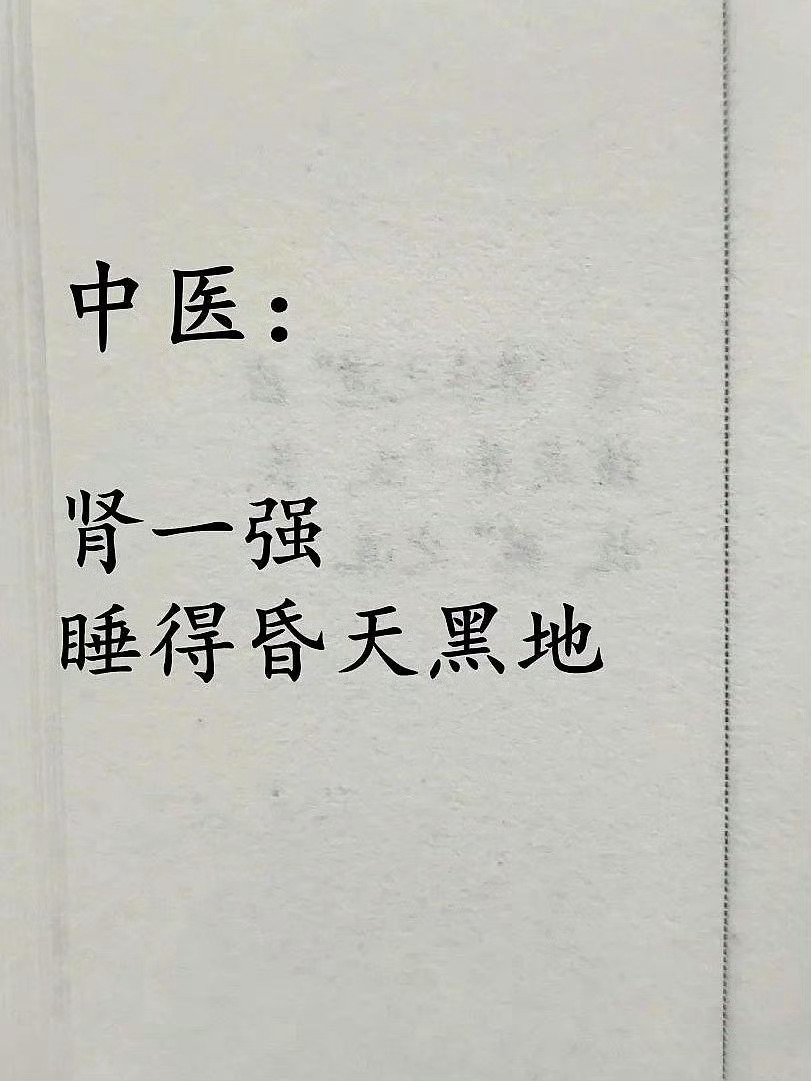 中医：
肾一强
睡得昏天黑地